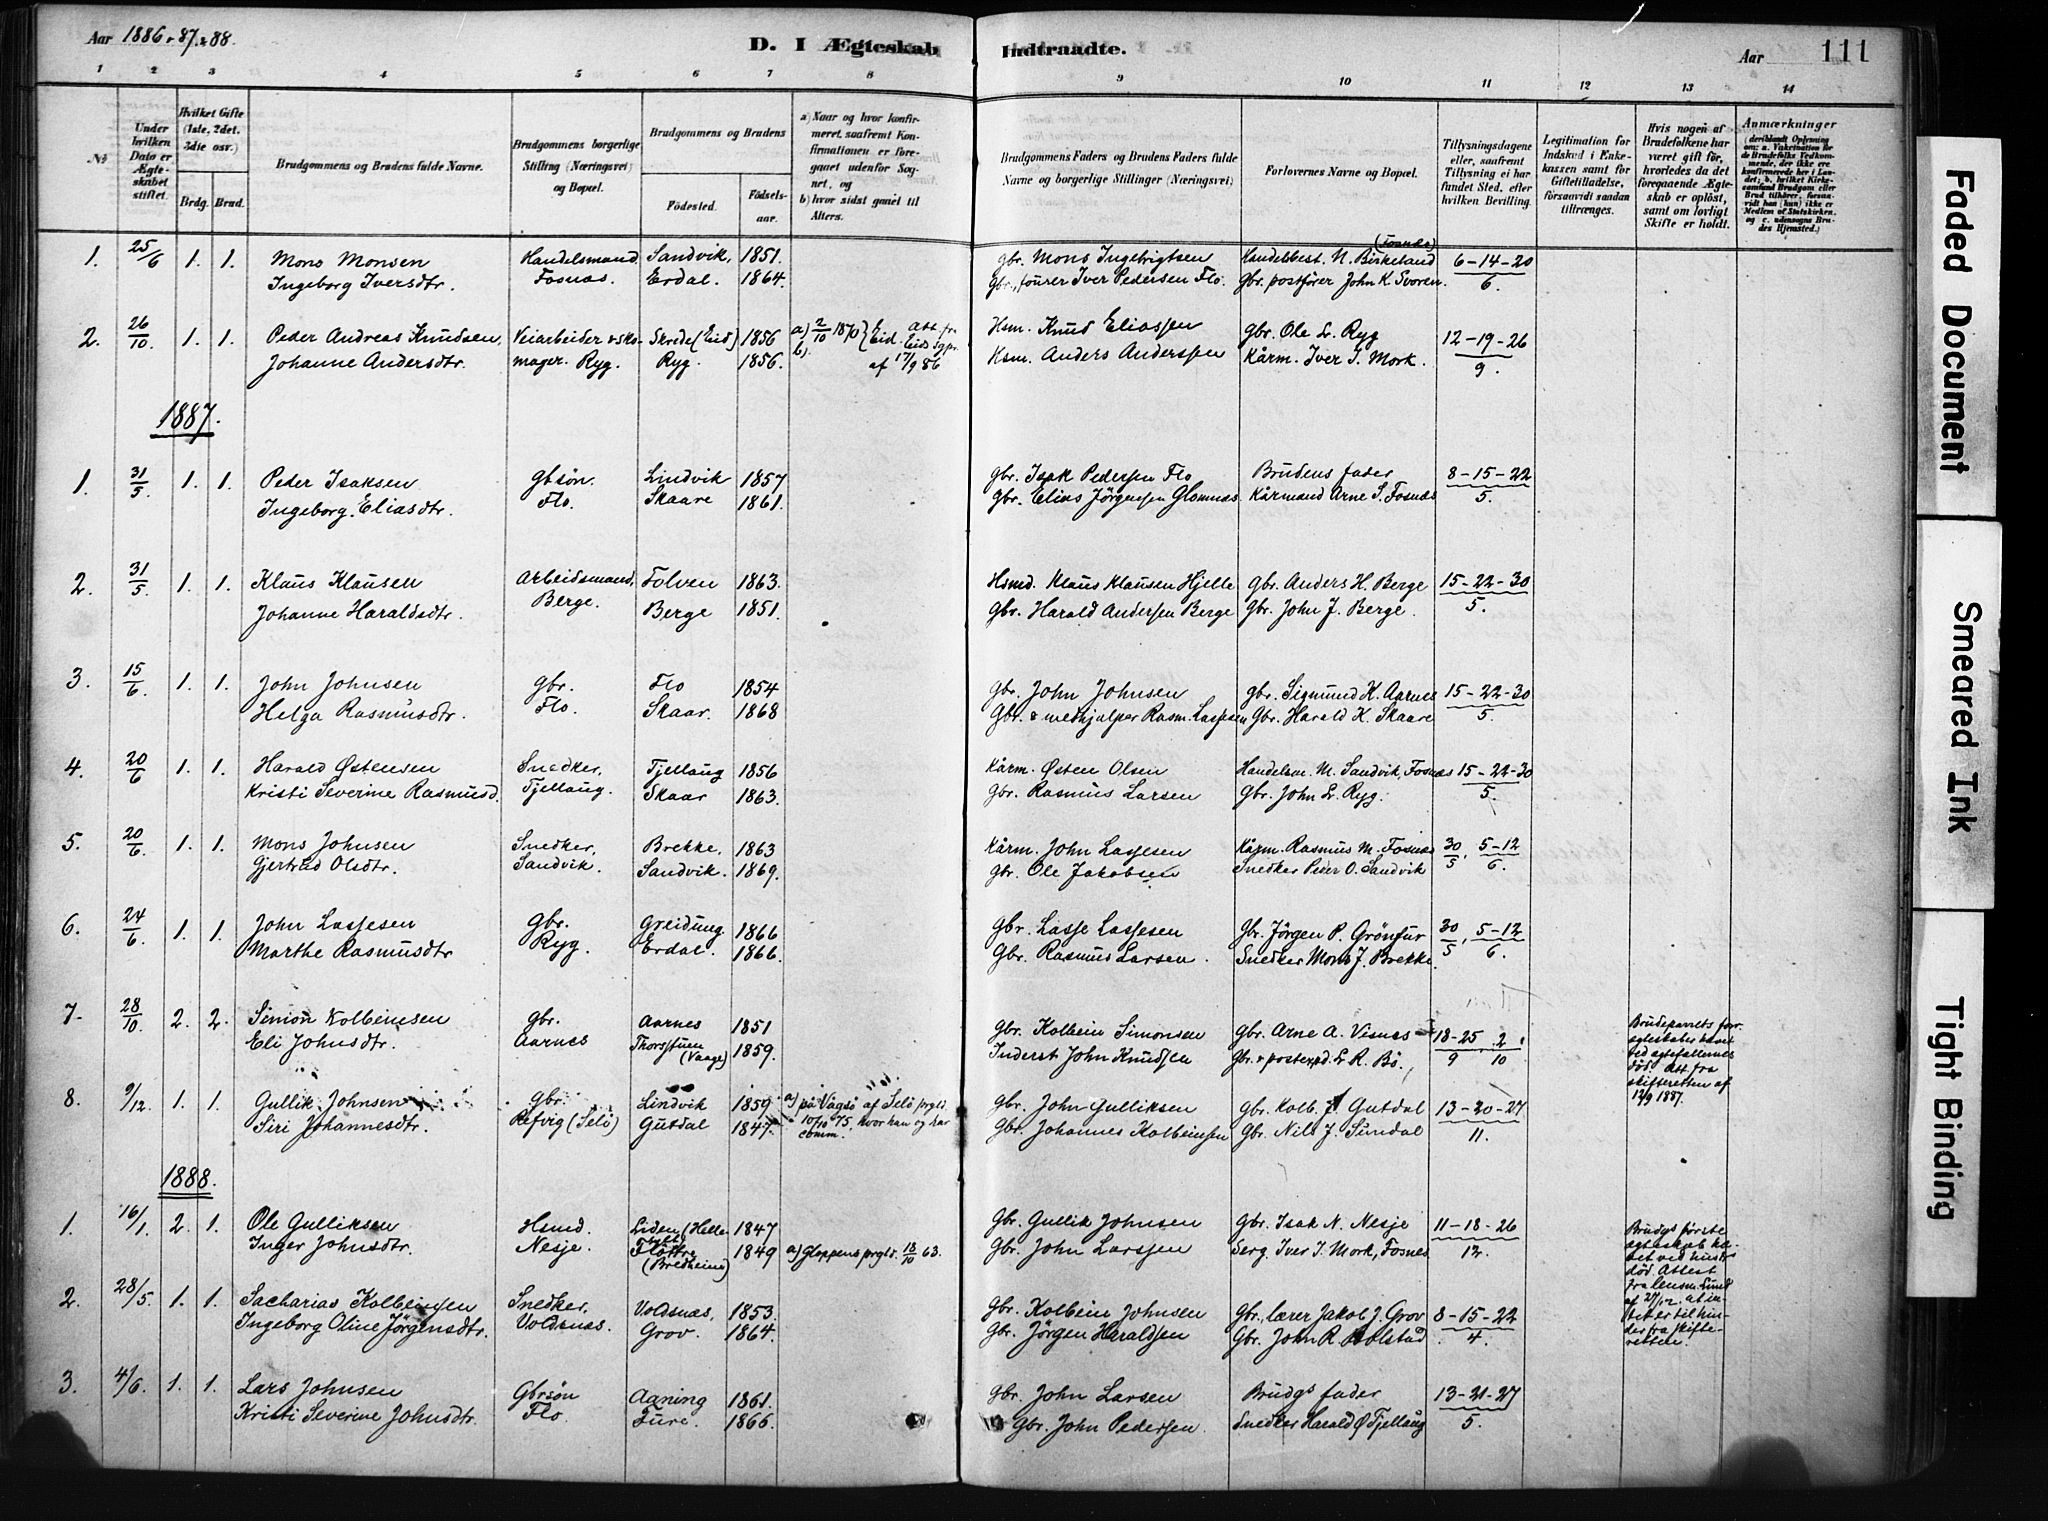 Aar 1886, 87 & 88.
D. I Ægteskab Indtraadte.
Aar 111
1 2 3 4 5 6 7 8 9 10 11 12 13 14
No
Under hvilken Dato er Ægteskabet stiftet.
Hvilket Gifte (1ste, 2det, 3die osv.)
Brdg. Brud.
Brudgommens og Brudens fulde Navne.
Brudgommens borgerlige Stilling (Næringsvei) og Bopæl.
Brudgommens og Brudens
Fødested. Fødselsaar.
a) Naar og hvor konfirmeret, saafremt Konfirmationen er foregaaet udenfor Sognet, og
b) hvor sidst gaaet til Alters.
Brudgommens Faders og Brudens Faders fulde Navne og borgerlige Stillinger (Næringsvei)
Forlovernes Navne og Bopæl.
Tillysningsdagene eller, saafremt Tillysning ei har fundet Sted, efter hvilken Bevilling.
Legitimation for Indskud i Enkekassen samt for Giftetilladelse, forsaavidt saadan tiltrænges.
Hvis nogen af Brudefolkene har været gift før, hvorledes da det foregaaende Ægteskab er opløst, samt om lovligt Skifte er holdt.
Anmærkninger
1. 25/6 1. 1. Mons Monsen Handelsmand Sandvik, 1851. gbr. Mons Ingebrigtsen Handelsbest. N. Birkeland (Fosnæs) 6-14-20
Ingeborg Iversdtr. Fosnæs. Erdal. 1864. Gbr., fourer Iver Pedersen Flo. Gbr. postfører John K. Svoren. 6.
2. 26/10 1. 1. Peder Andreas Knudsen, Veiarbeider & sko- Skrede (Eid) 1856 a) 2/10 1870 Eid. Att. fra Eids sgpr. Hsm. Knud Eliassen gbr. Ole L. Ryg 12-19-26
Johanne Andersdtr. mager. Ryg. Ryg. 1856. b). af 17/9 86 Hsm. Anders Anderssen Kårm. Iver I. Mork. 9.
1887.
1. 31/5. 1. 1. Peder Isaksen Gbsøn. Lindvik 1857 gbr. Isak Pedersen Flo Brudens fader 8-15-22
Ingeborg Eliasdtr. Flo. Skaare 1861. gbr. Elias Jørgensen Glomnæs Kårmand Arne S. Fosnæs 5.
2. 31/5. 1. 1. Klaus Klausen Arbeidsmand, Folven 1863. Hsmd. Klaus Klausen Hjelle gbr. Anders H. Berge 15-22-30
Johanne Haraldsdtr. Berge. Berge 1851. gbr. Harald Andersen Berge gbr. John J. Berge. 5.
3. 15/6. 1. 1. John Johnsen gbr. Flo 1854 gbr. John Johnsen gbr. Sigmund K. Aarnes 15-22-30
Helga Rasmusdtr. Flo. Skaar. 1868 Gbr. & medhjælper Rasm. Lassesen Gbr. Harald K. Skaare 5.
4. 20/6 1. 1. Harald Østensen Snedker, Tjellaug 1856 Kårm. Østen Olsen Handelsm. M. Sandvik, Fosnæs 15-22-30
Kristi Severine Rasmusd. Tjellaug. Skaar 1863. Gbr. Rasmus Larsen gbr. John L. Ryg. 5.
5. 20/6. 1. 1. Mons Johnsen Snedker, Brekke, 1863 Kårm. John Lassesen Kårm. Rasmus M. Fosnæs 30/5, 5-12
Gjertrud Olsdtr. Sandvik. Sandvik. 1869. gbr. Ole Jakobsen Snedker Peder O. Sandvik 6.
6. 24/6. 1. 1. John Lassesen gbr. Greidung 1866 Gbr. Lasse Lassesen Gbr. Jørgen P. Grønfur 30/5, 5-12
Marthe Rasmusdtr Ryg. Erdal. 1866. Gbr. Rasmus Larsen. Snedker Mons J. Brekke. 6.
7. 28/10. 2. 2. Simon Kolbeinsen gbr. Aarnes 1851 gbr. Kolbein Simonsen gbr. Arne A. Visnes 18-25, 2 Brudeparrets forr. ægteskaber hævet
Eli Johnsdtr. Aarnes (Vaage) 1859. Inderst John Knudsen Gbr. & L. R. Bø. 9 10 ved ægtefællernes død. Att. fra skifteretten af 12/9 1887.
8. 9/12. 1. 1. Gullik Johnsen Gbr. Lindvik 1859 a) på Vågsø af Selø prgld. Gbr. John Gulliksen gbr. Kolb. J. Gutdal 13-20-27
Siri Johannesdtr. Refvig (Selø) Gutdal 1847. 10/10 75, hvor han og har comm. Gbr. Johannes Kolbeinsen Gbr. Nils J. Sundal 11.
1888.
1. 16/1. 2. 1. Ole Gulliksen Hsmd. (Helle 1847 Gbr. Gullik Johnsen Gbr. Isak N. Nesje 11-18-26 Brudgs første ægteskab hæ-
Inger Johnsdtr. Nesje. Fløttre (Bredheim) 1849 a) Gloppens prgld. 18/10 63. Gbr. John Larssen Serg. Iver I. Mork, Fosnes 12. vet ved hustrus død. Attest fra lensm. Lund
2. 28/5. 1. 1. Sacharias Kolbeinsen Snedker, Voldsnæs, 1853. Gbr. Kolbein Johnsen Gbr., lærer Jakob J. Grov 8-15-22 af 27/12. at intet er til hin-
Ingeborg Oline Jørgensdtr. Voldsnæs. Grov. 1864. Gbr. Jørgen Haraldsen Gbr. John R. Bolstad 4. der fra skifteretten.
3. 4/6. 1. 1. Lars Johnsen Gbrsøn Aaning 1861. Gbr. John Larsen Brudgs fader 13-21-27
Kristi Severine Johnsdtr. Flo. Fure. 1866. Gbr. John Pedersen. Snedker Harald Ø Tjellaug 5.
Faded Document
Smeared Ink
Tight Binding